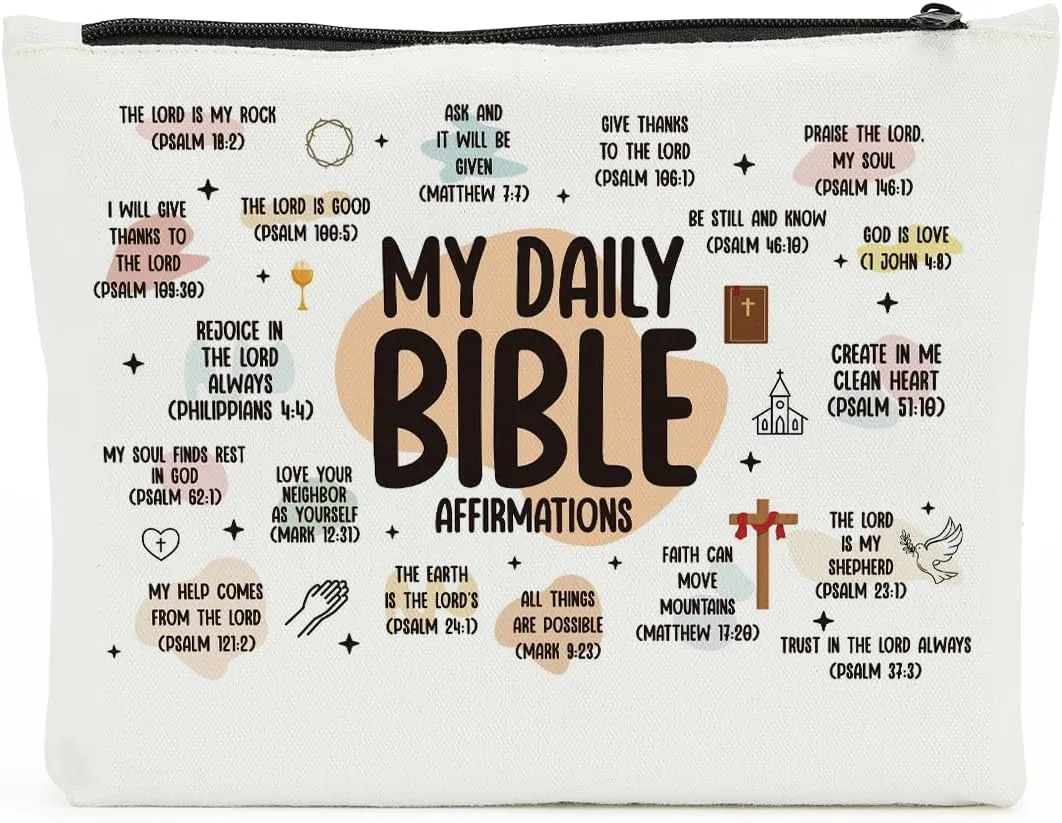 THE LORD IS MY ROCK
(PSALM 18:2)
ASK AND
IT WILL BE
GIVEN
(MATTHEW 7:7)
GIVE THANKS
TO THE LORD
(PSALM 106:1)
PRAISE THE LORD,
MY SOUL
(PSALM 146:1)
I WILL GIVE
THANKS TO
THE LORD
(PSALM 109:30)
THE LORD IS GOOD
(PSALM 100:5)
BE STILL AND KNOW
(PSALM 46:10)
GOD IS LOVE
(1 JOHN 4:8)
MY DAILY
BIBLE
AFFIRMATIONS
REJOICE IN
THE LORD
ALWAYS
(PHILIPPIANS 4:4)
CREATE IN ME
CLEAN HEART
(PSALM 51:10)
MY SOUL FINDS REST
IN GOD
(PSALM 62:1)
LOVE YOUR
NEIGHBOR
AS YOURSELF
(MARK 12:31)
MY HELP COMES
FROM THE LORD
(PSALM 121:2)
THE EARTH
IS THE LORD'S
(PSALM 24:1)
ALL THINGS
ARE POSSIBLE
(MARK 9:23)
FAITH CAN
MOVE
MOUNTAINS
(MATTHEW 17:20)
THE LORD
IS MY
SHEPHERD
(PSALM 23:1)
TRUST IN THE LORD ALWAYS
(PSALM 37:3)